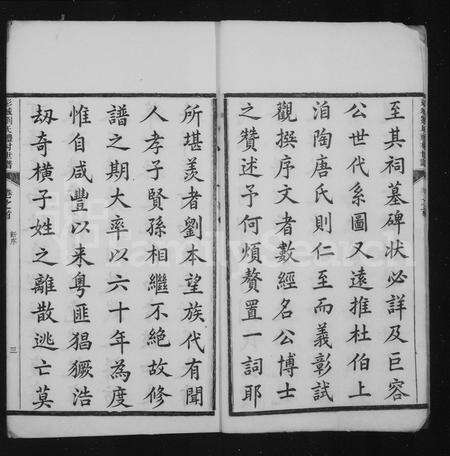 至其祠墓碑狀必詳及巨容
公世代系圖又遠推杜伯上
洎陶唐氏則仁至而義彰試
觀撰序文者數經名公博士
之贊述予何煩贅置一詞耶
所堪羨者劉本望族代有聞
人孝子賢孫相繼不絕故修
譜之期大率以六十年為度
惟自咸豐以來粵匪猖獗浩
劫奇橫子姓之離散逃亡莫
卷之首
新序
三
FamilySearch